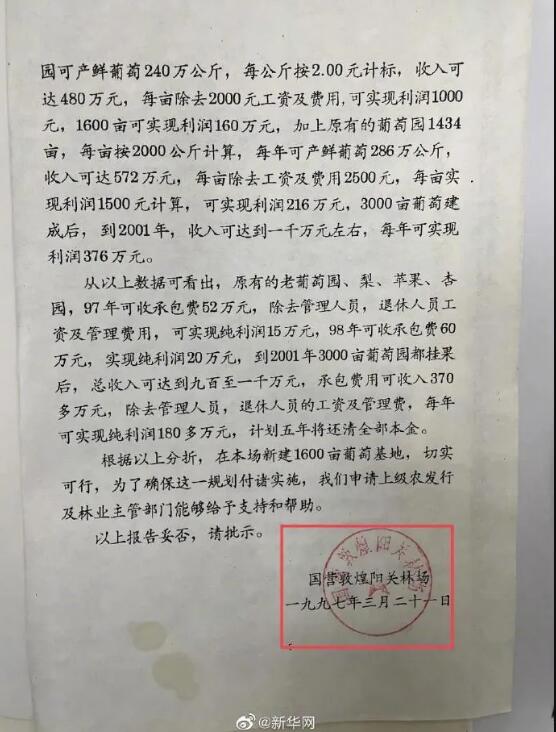 园可产鲜葡萄240万公斤，每公斤按2.00元计标，收入可
达480万元，每亩除去2000元工资及费用，可实现利润1000
元，1600亩可实现利润160万元，加上原有的葡萄园1434
亩，每亩按2000公斤计算，每年可产鲜葡萄286万公斤，
收入可达572万元，每亩除去工资及费用2500元，每亩实
现利润1500元计算，可实现利润216万元，3000亩葡萄建
成后，到2001年，收入可达到一千万元左右，每年可实现
利润376万元。
从以上数据可看出，原有的老葡萄园、梨、苹果、杏
园，97年可收承包费52万元，除去管理人员，退休人员工
资及管理费用，可实现纯利润15万元，98年可收承包费60
万元，实现纯利润20万元，到2001年3000亩葡萄园都挂果
后，总收入可达到九百至一千万元，承包费用可收入370
多万元，除去管理人员，退休人员的工资及管理费，每年
可实现纯利润180多万元，计划五年将还清全部本金。
根据以上分折，在本场新建1600亩葡萄基地，切实
可行，为了确保这一规划付诸实施，我们申请上级农发行
及林业主管部门能够给予支持和帮助。
以上报告妥否，请批示。
国营敦煌阳关林场
国营敦煌阳关林场
一九九七年三月二十一日
@新华网